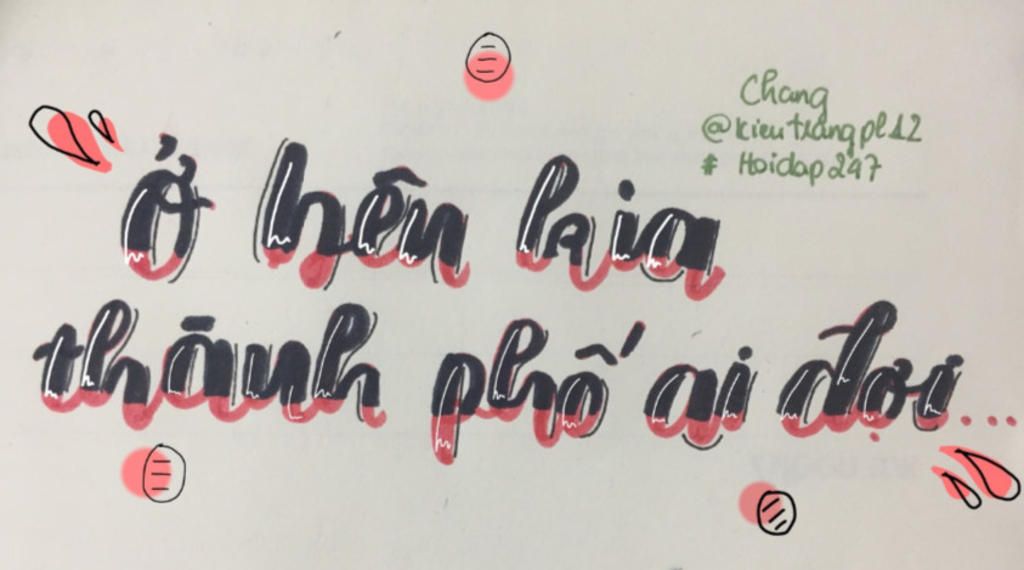 Chang
@kieutrangpl12
# Hoidap247
Ở bên kia
thành phố ai đợi...